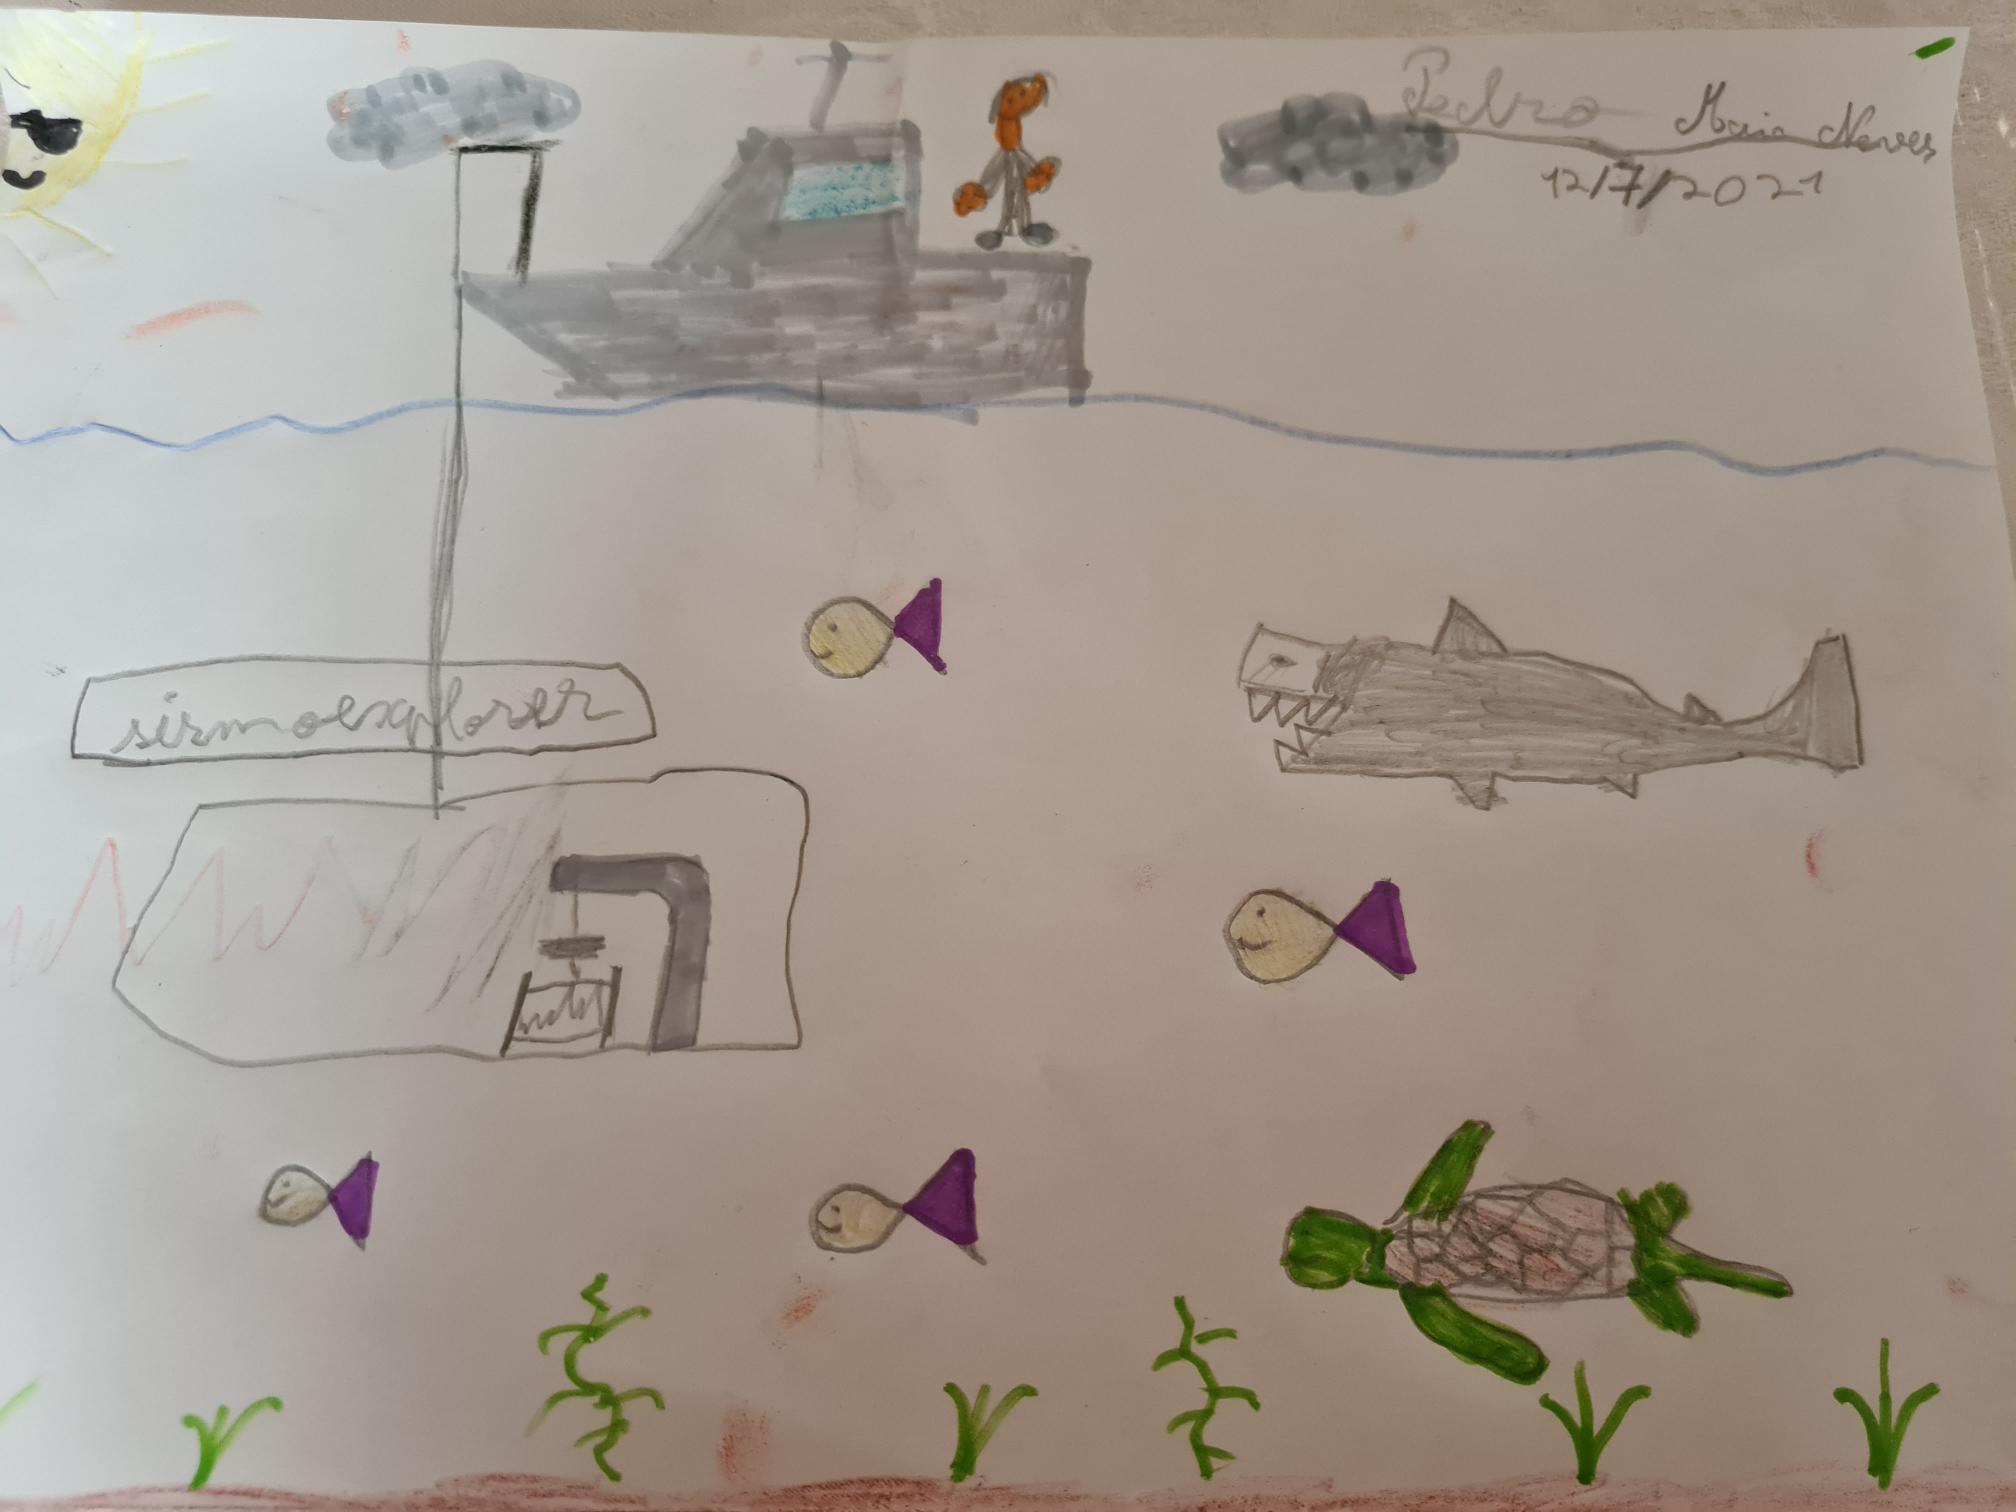 Pedro Maia Neves
12/7/2021
sismoexplorer